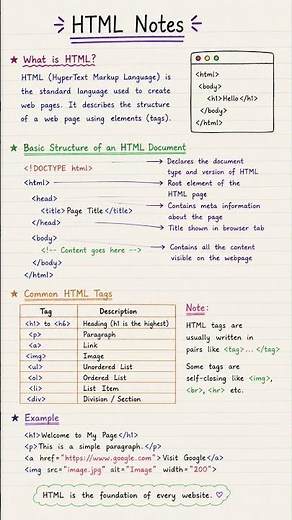 HTML Notes
★ What is HTML?
HTML (HyperText Markup Language) is
the standard language used to create
web pages. It describes the structure
of a web page using elements (tags).
<html>
<body>
<h1>Hello</h1>
</body>
</html>
★ Basic Structure of an HTML Document
<!DOCTYPE html>
Declares the document
type and version of HTML
<html>
Root element of the
HTML page
<head>
Contains meta information
about the page
<title>Page Title</title>
Title shown in browser tab
</head>
<body>
<!-- Content goes here -->
Contains all the content
visible on the webpage
</body>
</html>
★ Common HTML Tags
Tag Description
<h1> to <h6> Heading (h1 is the highest)
<p> Paragraph
<a> Link
<img> Image
<ul> Unordered List
<ol> Ordered List
<li> List Item
<div> Division / Section
Note:
HTML tags are
usually written in
pairs like <tag>...</tag>
Some tags are
self-closing like <img>,
<br>, <hr> etc.
★ Example
<h1>Welcome to My Page</h1>
<p>This is a simple paragraph.</p>
<a href="https://www.google.com">Visit Google</a>
<img src="image.jpg" alt="Image" width="200">
HTML is the foundation of every website. ♡